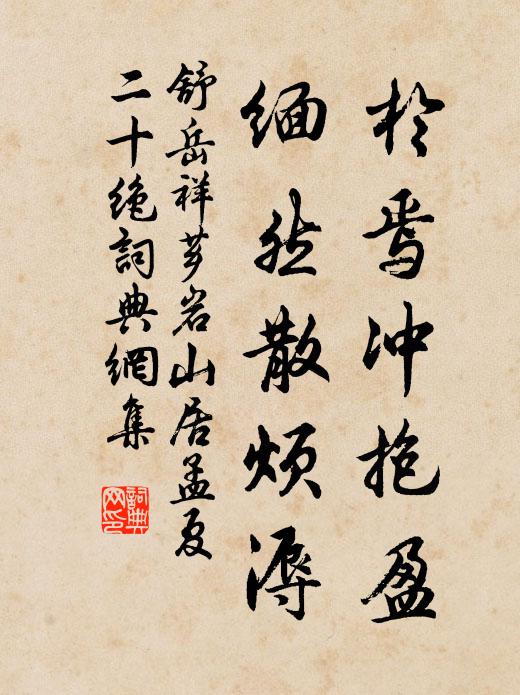 於焉冲抱盈
缅然散烦溽
舒岳祥萝岩山居孟夏
二十绝詞典網集
詞典
网印